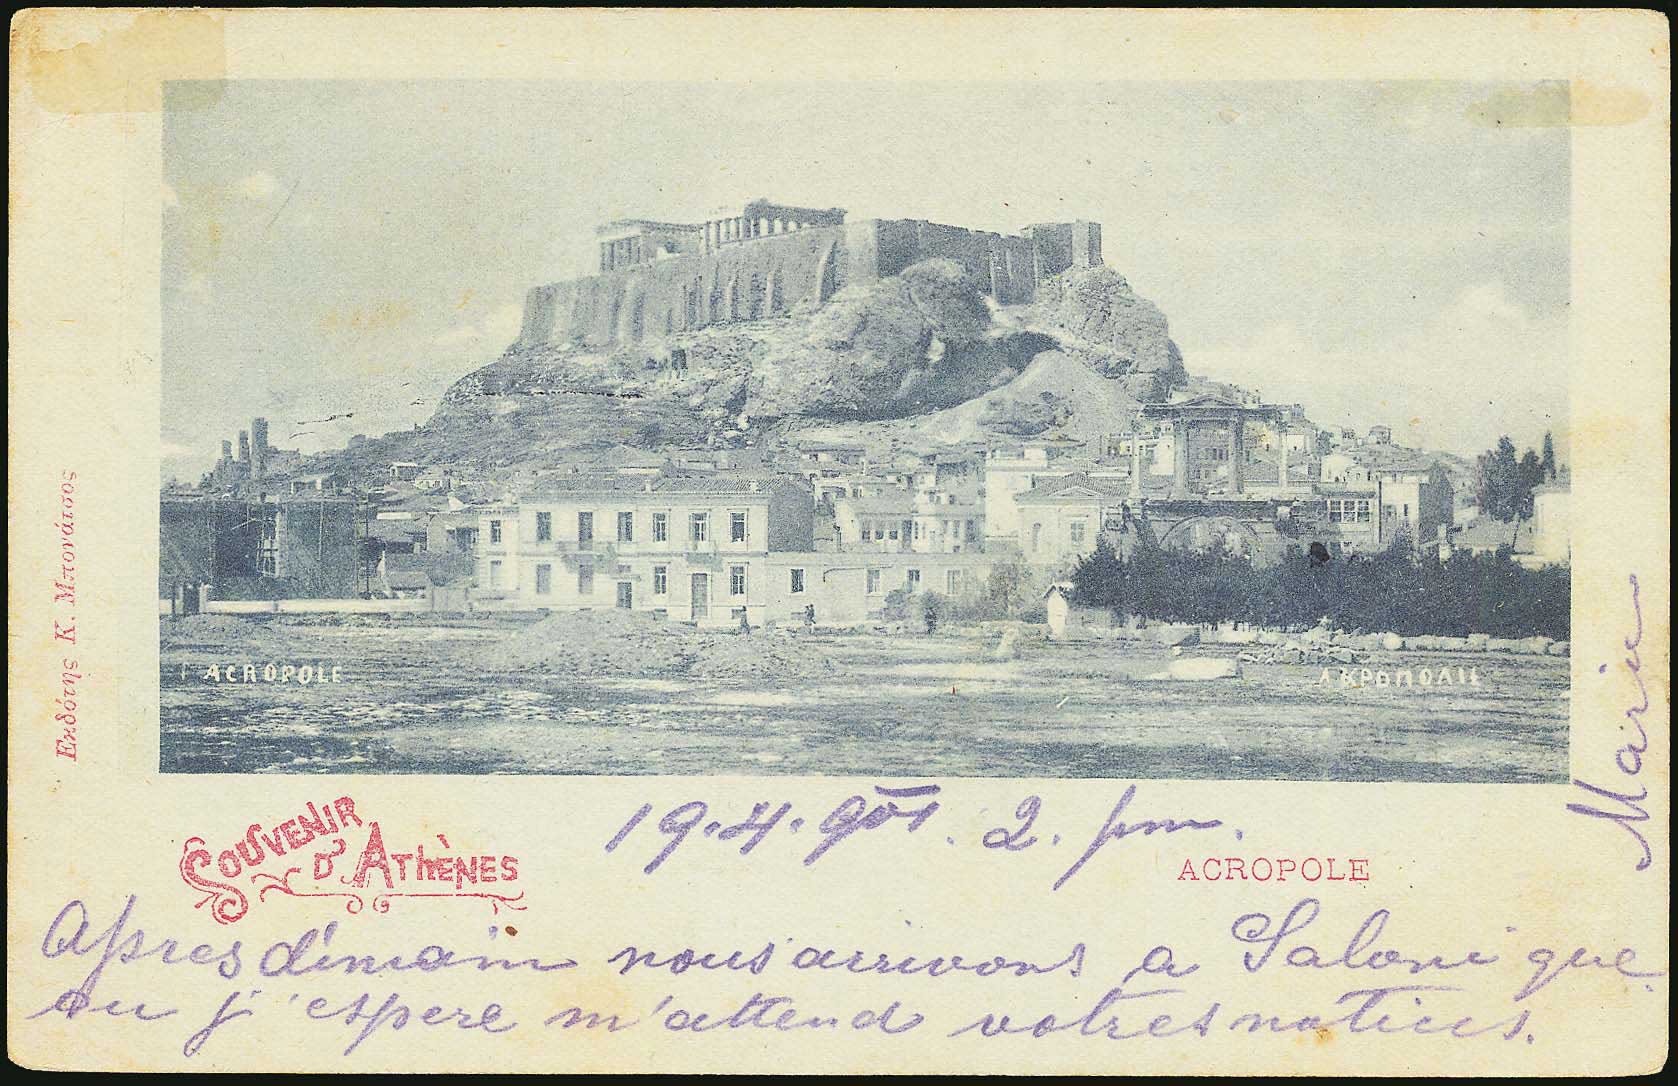 Εκδότης Κ. Μπονάτσος
ACROPOLE
ΑΚΡΟΠΟΛΙΣ
SOUVENIR
D'ATHÈNES
19.4.901. 2. pm.
ACROPOLE
Marie
Apres demain nous arrivons a Salonique
ou j'espere m'attend votres notices.